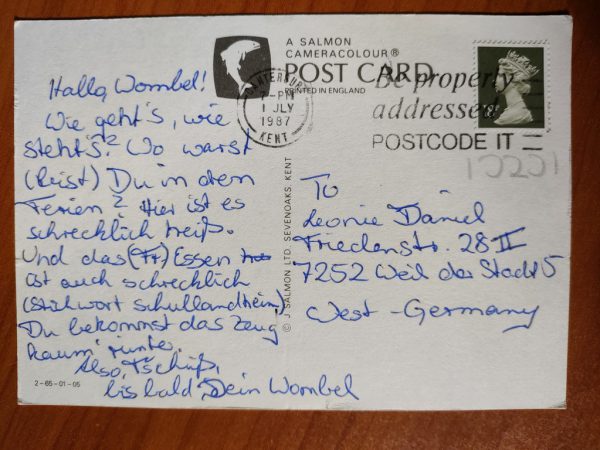 A SALMON
CAMERACOLOUR®
POST CARD
PRINTED IN ENGLAND
CANTERBURY
PM
1 JLY
1987
KENT
Be properly
addressed
POSTCODE IT
Hallo, Wombel!
Wie geht's, wie
steht's? Wo warst
(bist) Du in den
Ferien? Hier ist es
schrecklich heiß.
Und das Essen
ist auch schrecklich
(Stichwort Schullandheim)
Du bekommst das Zeug
kaum runter.
Also, Tschüß,
bis bald, Dein Wombel
To
Leonie Daniel
Friedenstr. 28 II
7252 Weil der Stadt 5
West-Germany
© J. SALMON LTD. SEVENOAKS KENT
2-65-01-05